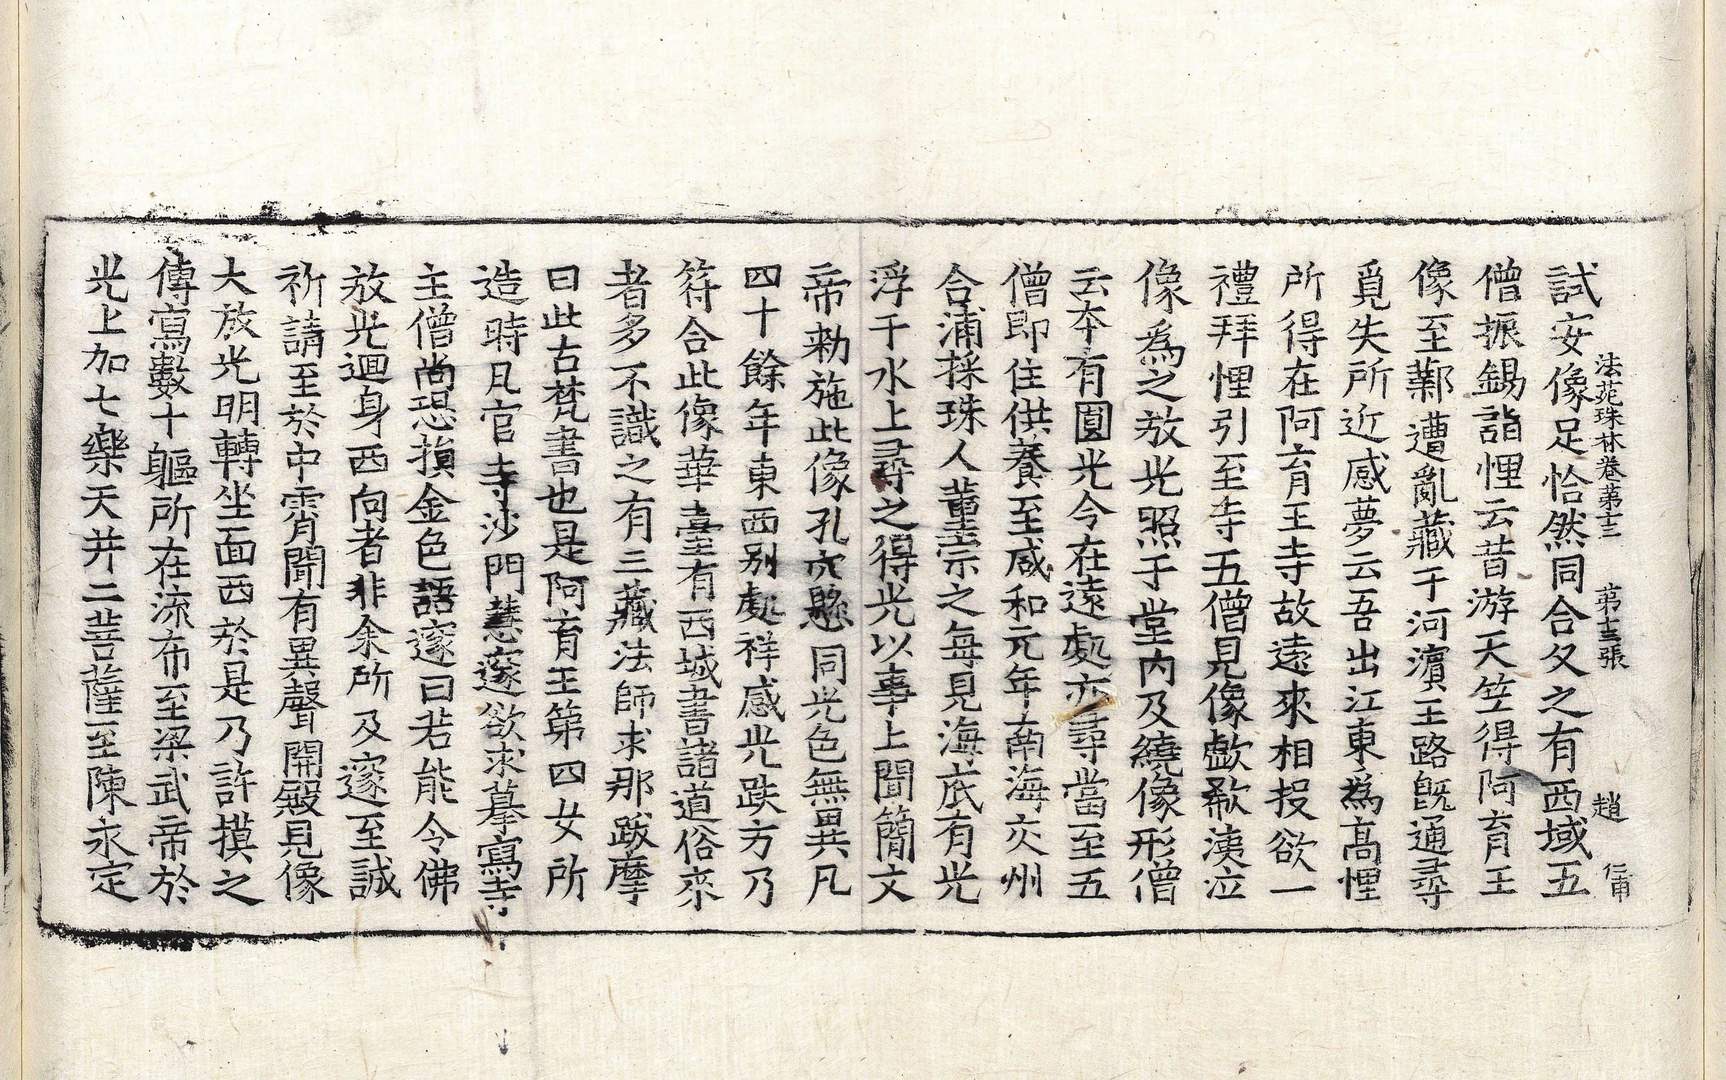 法苑珠林卷第十三 第十三張 趙 仁甫
試安像足恰然同合久之有西域五
僧振錫詣悝云昔游天竺得阿育王
像至鄴遭亂藏于河濱王路既通尋
覓失所近感夢云吾出江東為高悝
所得在阿育王寺故遠來相投欲一
禮拜悝引至寺五僧見像歔欷洟泣
像為之放光照于堂內及繞像形僧
云本有圓光今在遠處亦尋當至五
僧即住供養至咸和元年南海交州
合浦採珠人董宗之每見海底有光
浮于水上尋之得光以事上聞簡文
帝勅施此像孔穴懸同光色無異凡
四十餘年東西別處祥感光趺方乃
符合此像華臺有西域書諸道俗來
者多不識之有三藏法師求那跋摩
曰此古梵書也是阿育王第四女所
造時凡官寺沙門慧邃欲求摹寫寺
主僧尚恐損金色語邃曰若能令佛
放光迴身西向者非余所及邃至誠
祈請至於中霄聞有異聲開殿見像
大放光明轉坐面西於是乃許摸之
傳寫數十軀所在流布至梁武帝於
光上加七樂天并二菩薩至陳永定